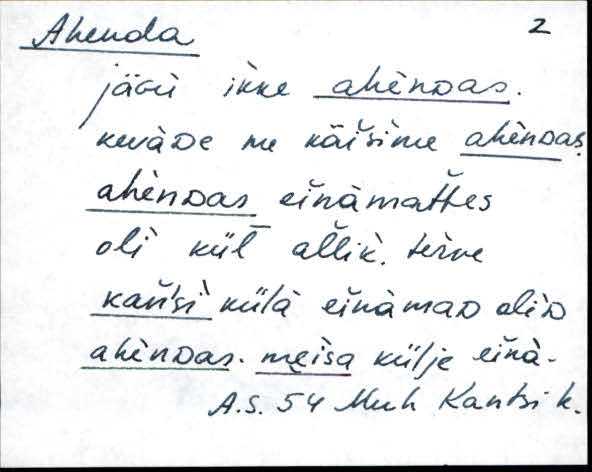 Ahenda 2
jäɢii ikke ahènᴅas.
kevàᴅe me käišìme ahènᴅas,
ahènᴅas eĭnàmattes
oli kül allik̀. terve
kaǹtsi külà eĭnàmaᴅ oliᴅ
ahènᴅas. meĭsa külje eĭnà-
A.S. 54 Muh Kantsi k.